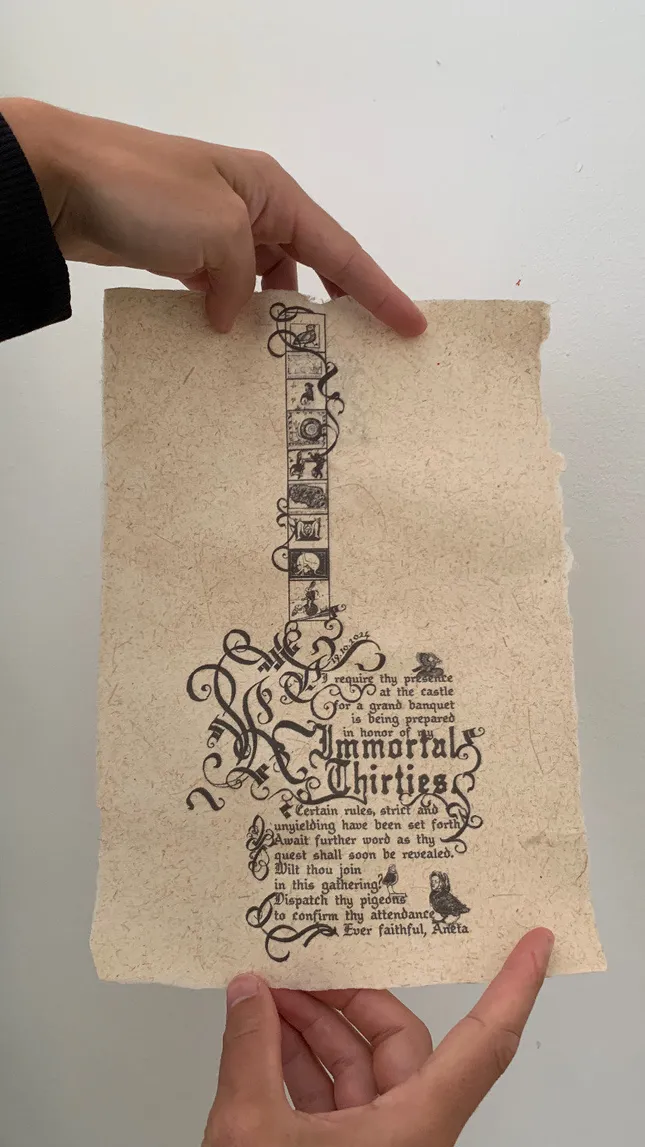 19.10.2024
I require thy presence
at the castle
for a grand banquet
is being prepared
in honor of my
Immortal
Thirties.
Certain rules, strict and
unyielding have been set forth
Await further word as thy
quest shall soon be revealed.
Wilt thou join
in this gathering?
Dispatch thy pigeons
to confirm thy attendance
Ever faithful, Aneta